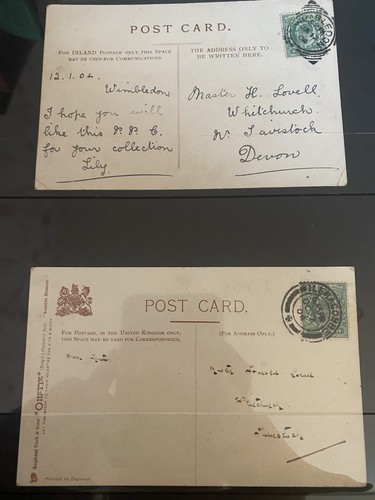 POST CARD.
FOR INLAND POSTAGE ONLY, THIS SPACE
MAY BE USED FOR COMMUNICATIONS.
THE ADDRESS ONLY TO
BE WRITTEN HERE.
12.1.04.
Wimbledon
I hope you will
like this P. P. C.
for your collection
Lily.
Master H. Lovell.
Whitchurch.
Nr. Tavistock
Devon
POST CARD.
FOR POSTAGE, IN THE UNITED KINGDOM ONLY,
THIS SPACE MAY BE USED FOR CORRESPONDENCE.
(FOR ADDRESS ONLY.)
Raphael Tuck & Sons' "OILETTE"
Master
Lovell
Whitchurch
Tavistock
ILFRACOMBE
Printed in England.